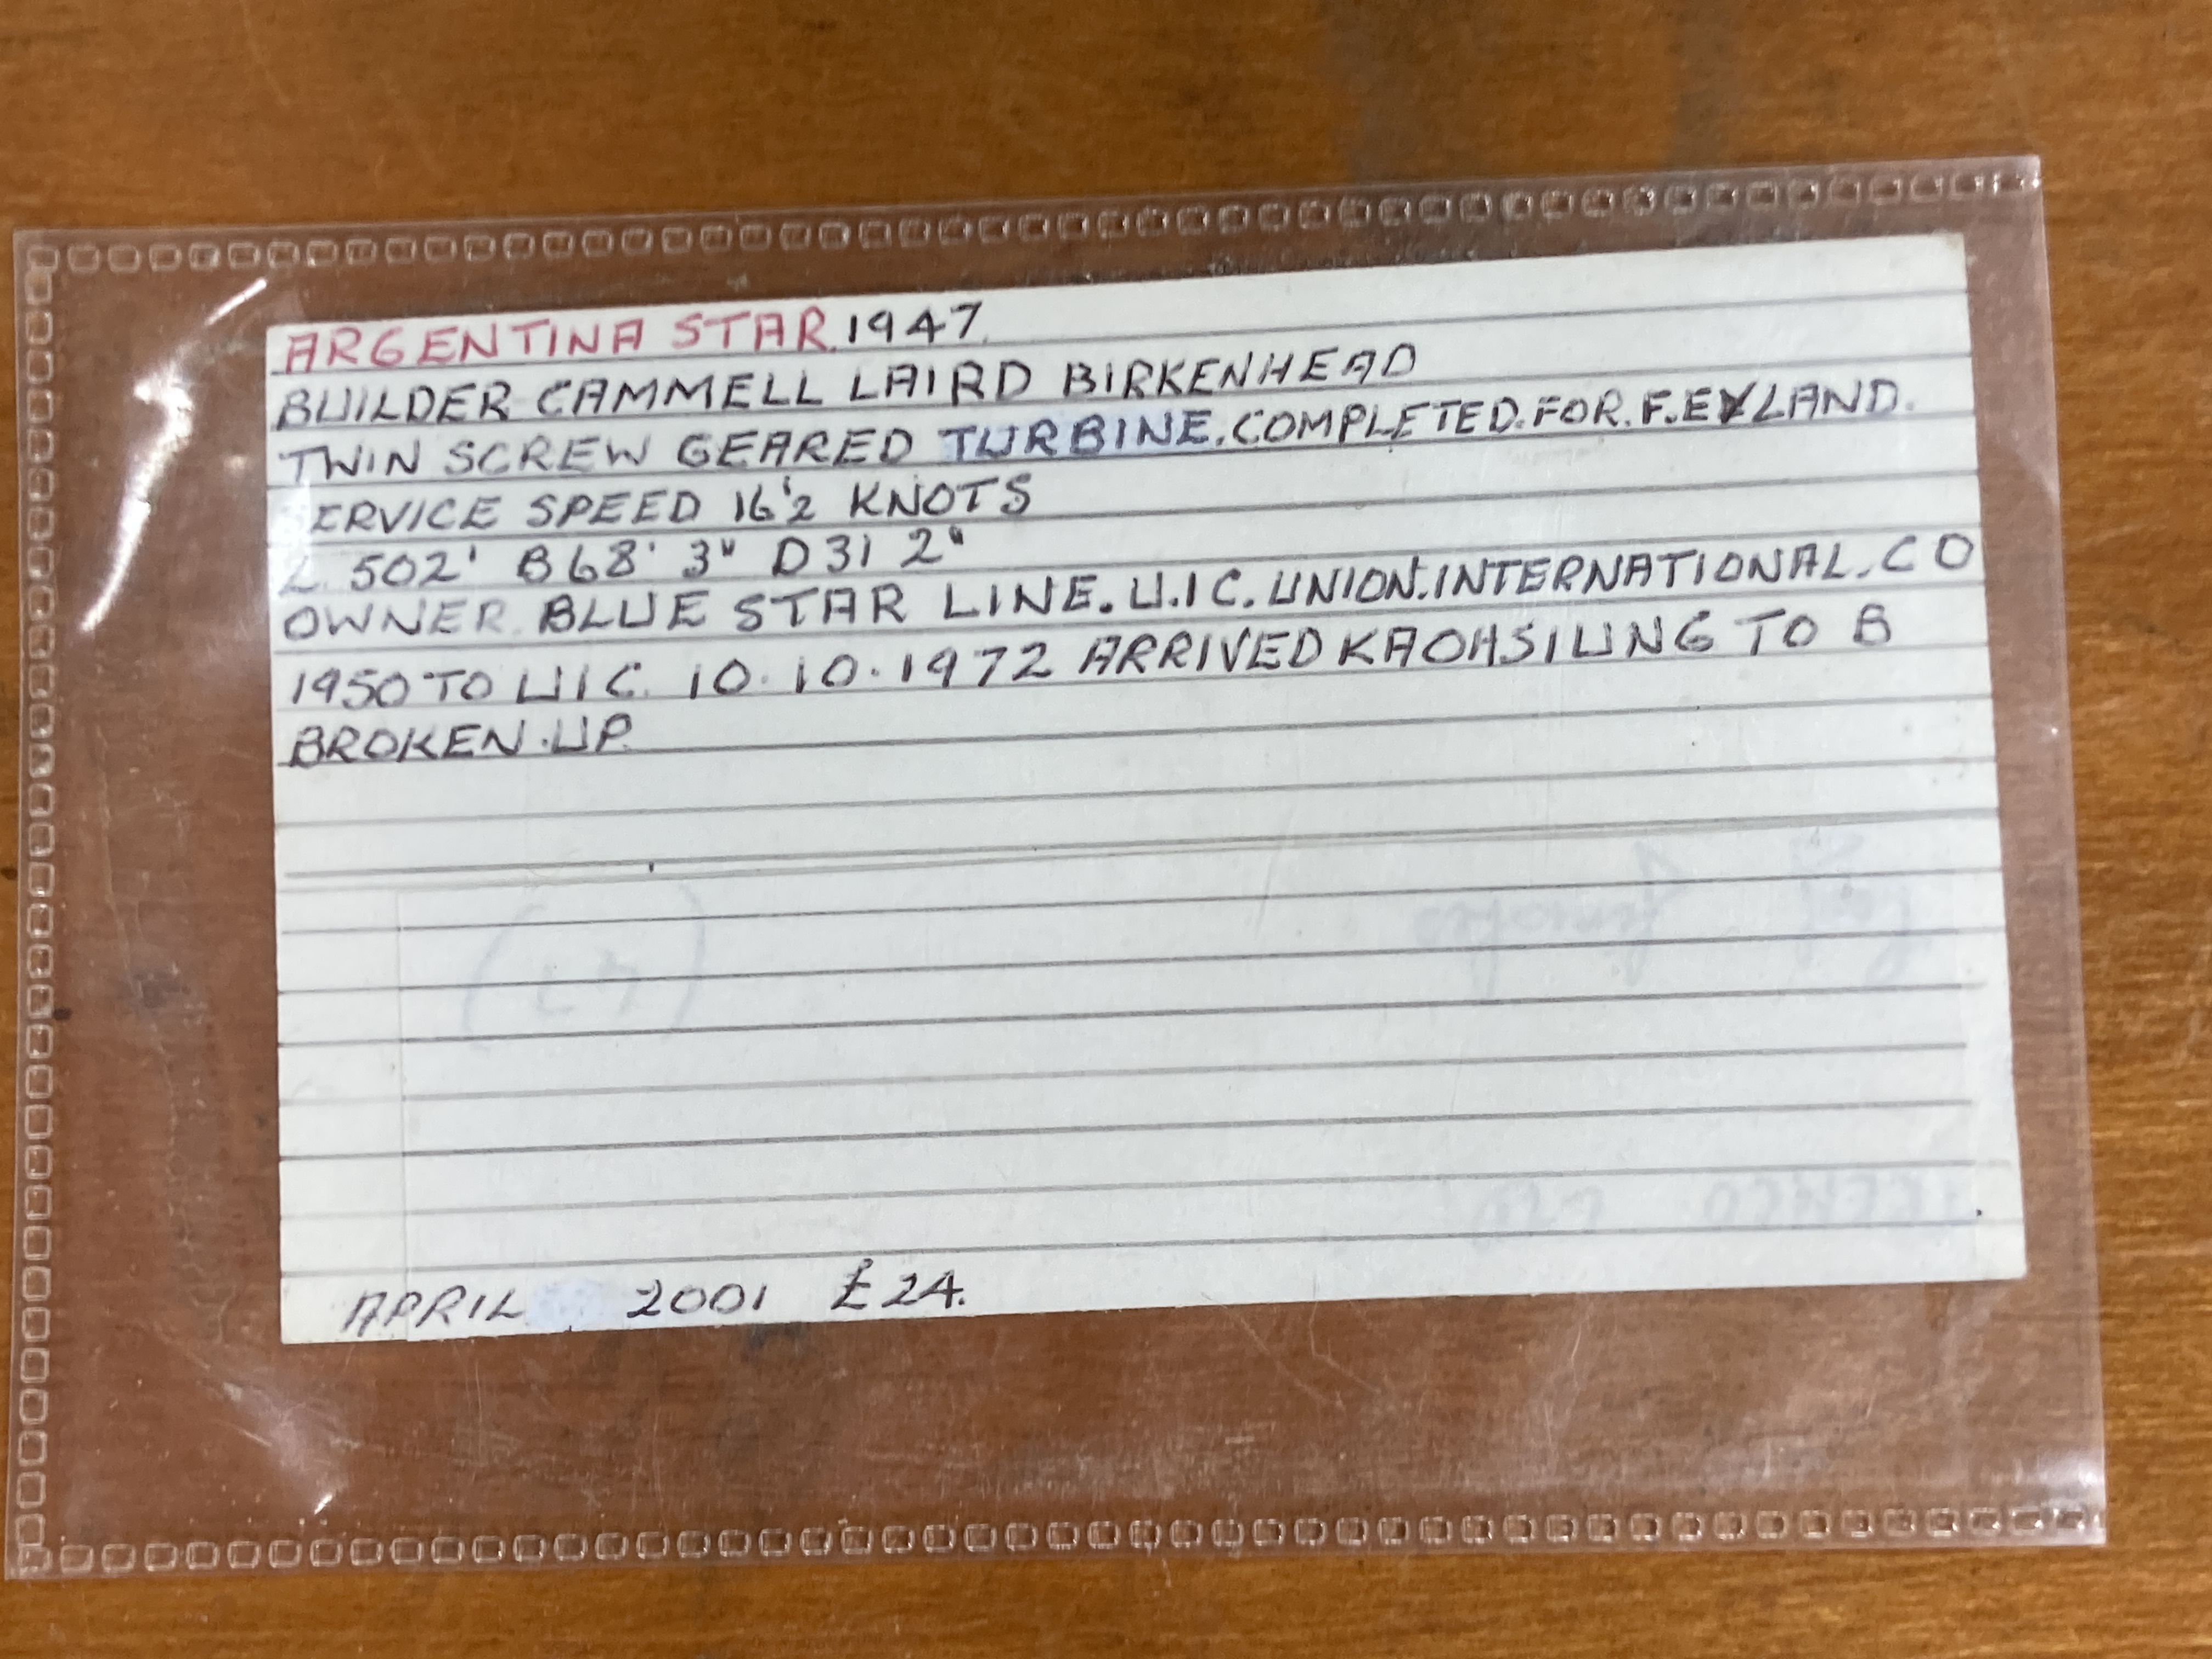 ARGENTINA STAR.1947.
BUILDER CAMMELL LAIRD BIRKENHEAD
TWIN SCREW GEARED TURBINE.COMPLETED.FOR.F.EYLAND.
ERVICE SPEED 16½ KNOTS
L. 502' B68' 3" D31 2"
OWNER. BLUE STAR LINE. U.I C. UNION.INTERNATIONAL. CO
1950 TO UIC. 10.10.1972 ARRIVED KAOHSIUNG TO B
BROKEN.UP.
(47)
APRIL 2001 £24.